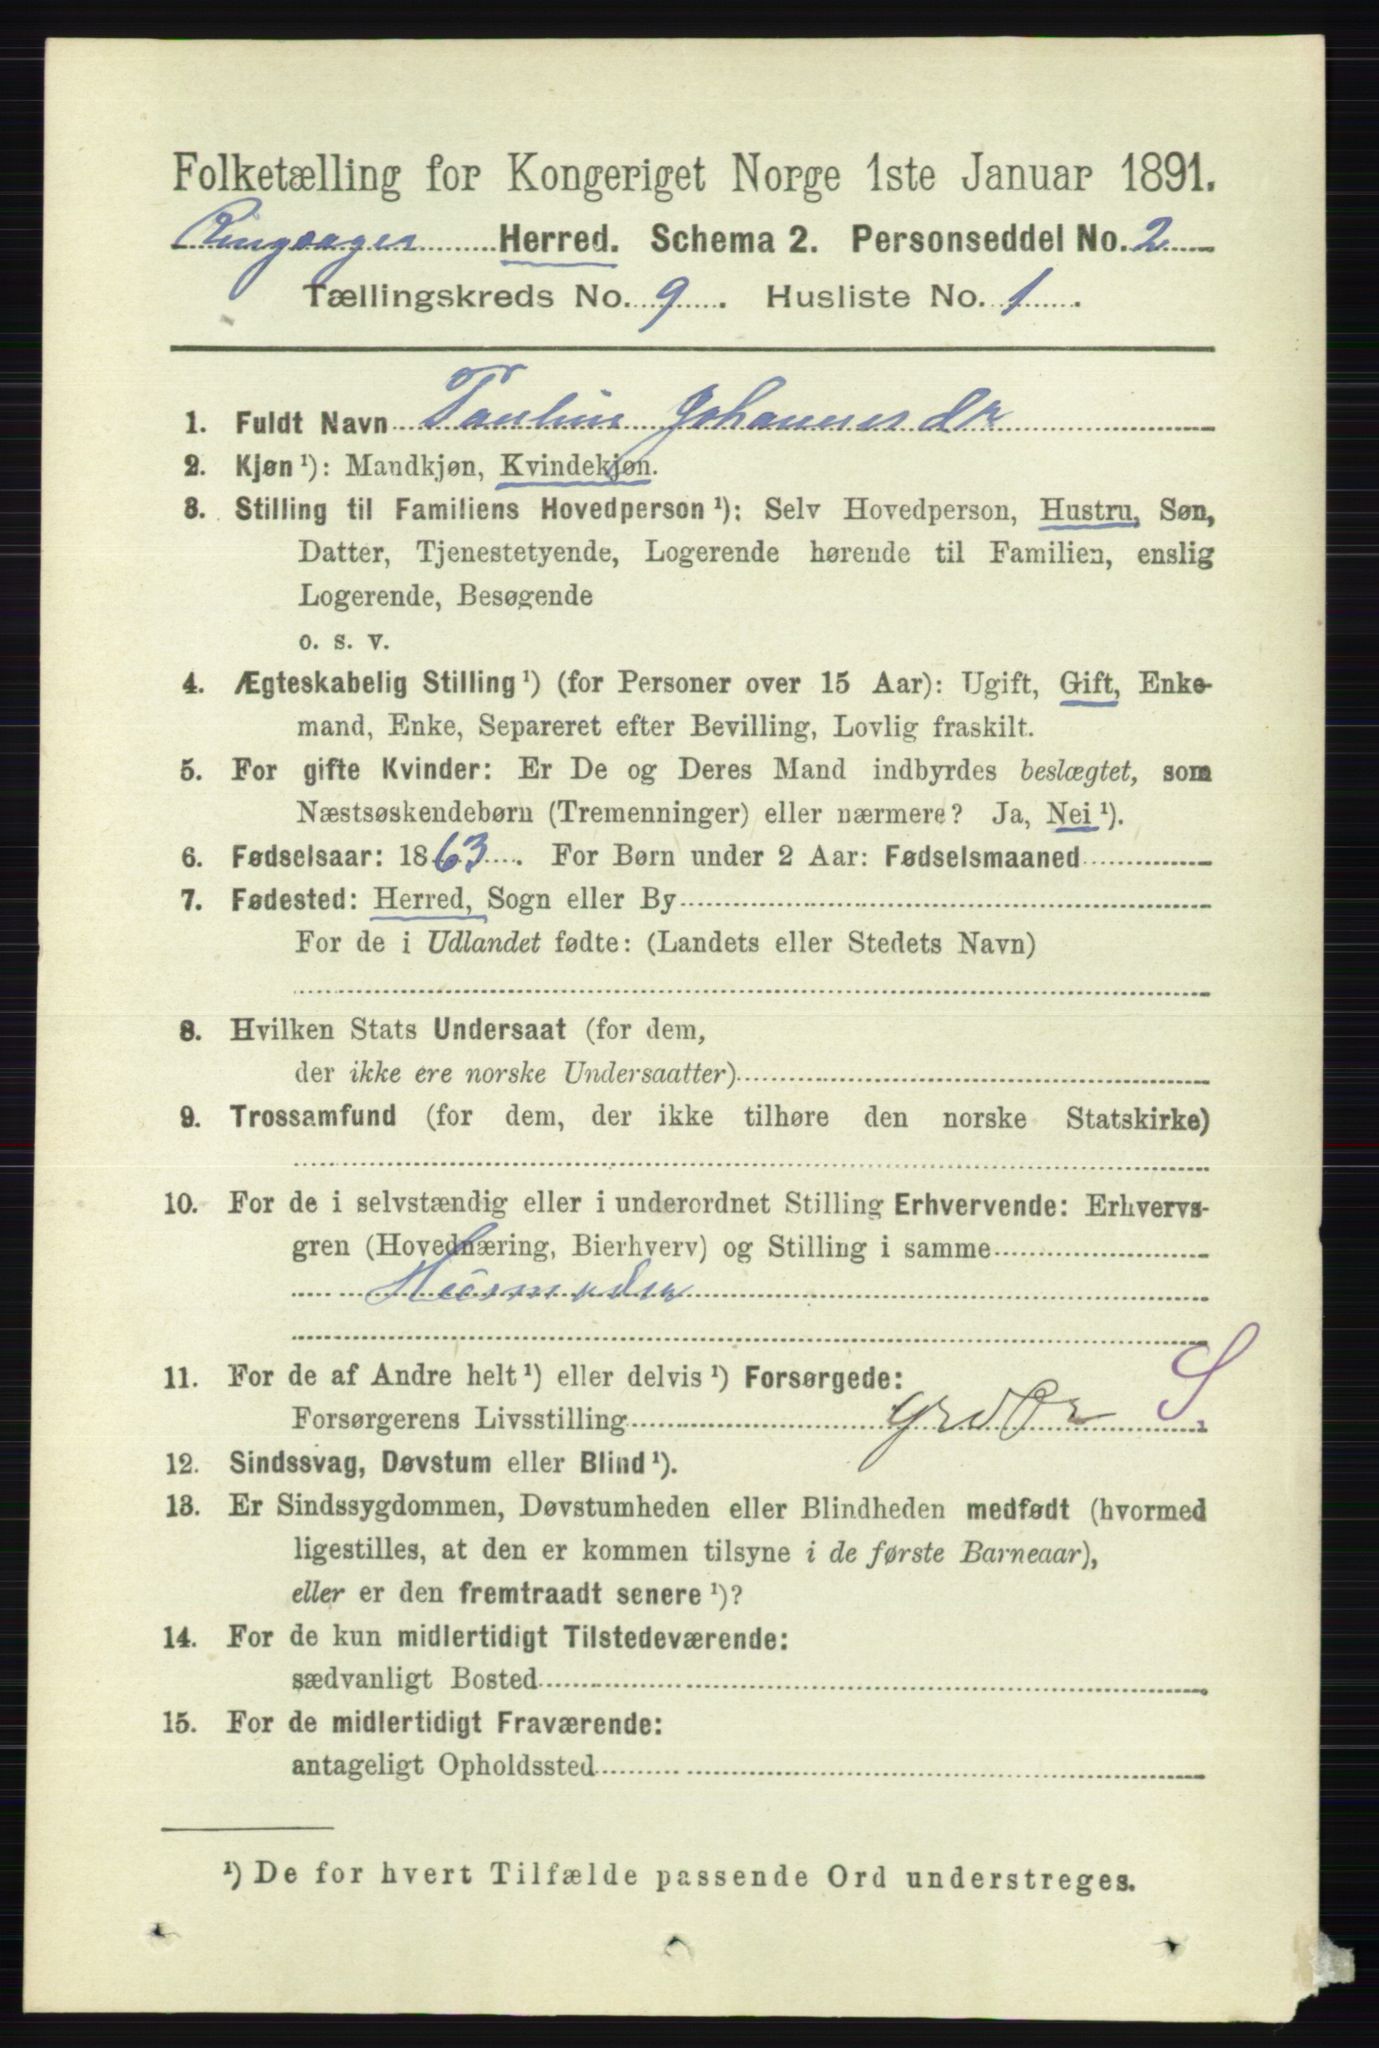 Folketælling for Kongeriget Norge 1ste Januar 1891.
Ringsager Herred. Schema 2. Personseddel No. 2
Tællingskreds No. 9. Husliste No. 1.
1. Fuldt Navn Pauline Johannesdr
2. Kjøn ¹): Mandkjøn, Kvindekjøn.
3. Stilling til Familiens Hovedperson ¹): Selv Hovedperson, Hustru, Søn,
Datter, Tjenestetyende, Logerende hørende til Familien, enslig
Logerende, Besøgende
o. s. v.
4. Ægteskabelig Stilling ¹) (for Personer over 15 Aar): Ugift, Gift, Enke-
mand, Enke, Separeret efter Bevilling, Lovlig fraskilt.
5. For gifte Kvinder: Er De og Deres Mand indbyrdes beslægtet, som
Næstsøskendebørn (Tremenninger) eller nærmere? Ja, Nei ¹).
6. Fødselsaar: 1863. For Børn under 2 Aar: Fødselsmaaned
7. Fødested: Herred, Sogn eller By
For de i Udlandet fødte: (Landets eller Stedets Navn)
8. Hvilken Stats Undersaat (for dem,
der ikke ere norske Undersaatter)
9. Trossamfund (for dem, der ikke tilhøre den norske Statskirke)
10. For de i selvstændig eller i underordnet Stilling Erhvervende: Erhvervs-
gren (Hovednæring, Bierhverv) og Stilling i samme
Husmoder
11. For de af Andre helt ¹) eller delvis ¹) Forsørgede: S
Forsørgerens Livsstilling
12. Sindssvag, Døvstum eller Blind ¹).
13. Er Sindssygdommen, Døvstumheden eller Blindheden medfødt (hvormed
ligestilles, at den er kommen tilsyne i de første Barneaar),
eller er den fremtraadt senere ¹)?
14. For de kun midlertidigt Tilstedeværende:
sædvanligt Bosted
15. For de midlertidigt Fraværende:
antageligt Opholdssted
¹) De for hvert Tilfælde passende Ord understreges.